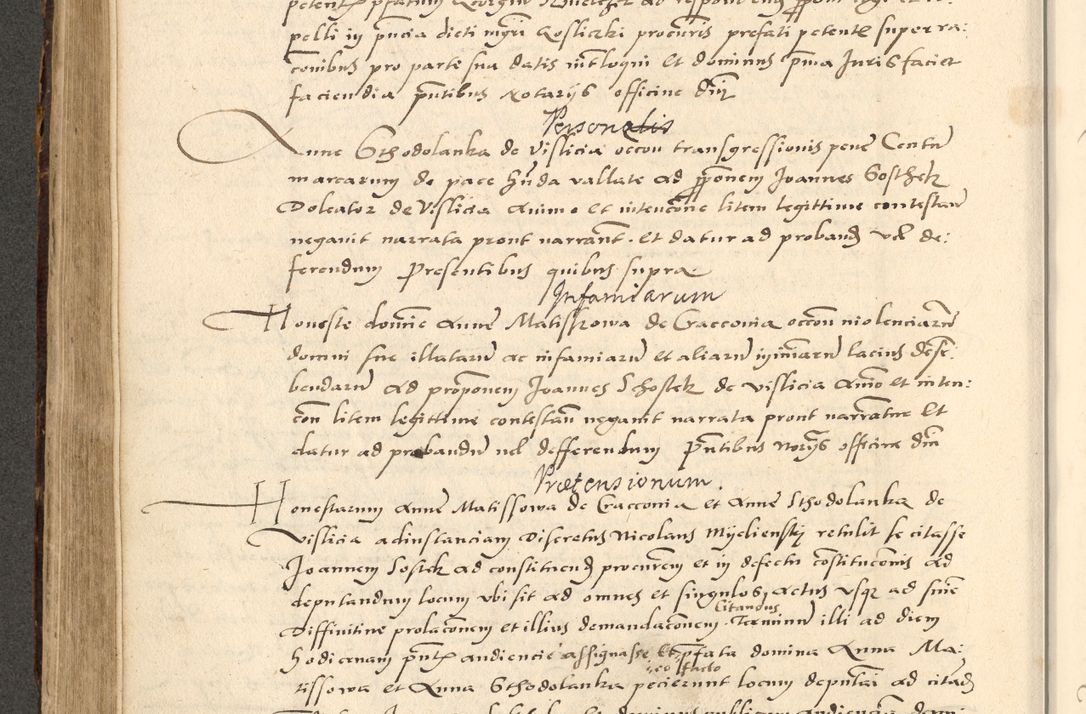 pelli in pñcia dicti mgri Kosliczki procuris prefati petentꝭ super ra:
conibus pro parte sua datis intloqui Et dominus pma Juris faciet
faciendia pñtibus Notarijs officine dnij
Personalis
Anne Sthodolanka de Vislicia occou transgressionis pene Centu
marcarum de pace hnda vallate ad pponem Joannes Sosthek
Doleator de Vislicia Animo Et intencone litem legittime contestan
negavit narrata prout narrant. Et datur ad proband vel de:
ferendum Presentibus quibus supra
Infamiarum
Honeste domne Anne Matissowa de Cracconia occou violenciaru
domui sue illataru ac infamiaru Et aliaru iniuriaru lacius descri
bendaru Ad proponem Joannes Schostek de Vislicia Animo Et inten:
con litem legittime contestan negavit narrata prout narratur Et
datur ad probandu vel defferendum Pñtibus Norijs officine dni
Prætensionum.
Honestarum Anne Matissowa de Cracconia Et Anne Sthodolanka de
Vislicia ad instanciam Discretus Nicolaus Myelienskj retulit se citasse
Joannem Sostek ad constituend procurem Et in defectu constitucionis Ad
deputandum locum ubi sit Ad omnes Et singulos actus usqz ad sniæ
Diffinitive prolaconem Et illius demandaconem. Citandus Terminu illi ad diem
hodiernam pñtꝭ audiencie assignasse Et ibi pfata domina Anna Ma:
tissowa Et Anna Sthodolanka in eo facto pecierunt locum deputari ad citand